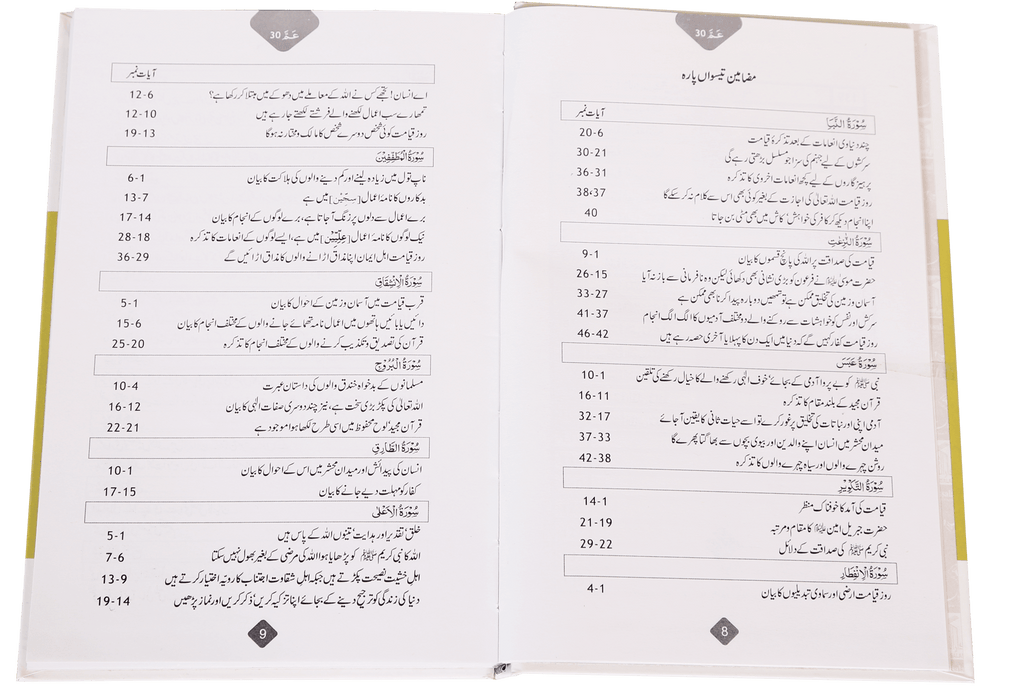 عَمَّ 30
مضامین تیسواں پارہ
آیات نمبر
سُوْرَةُ النَّبَاِ
چند دنیاوی انعامات کے بعد تذکرۂ قیامت 20-6
سرکشوں کے لیے جہنم کی سزا جو مسلسل بڑھتی رہے گی 30-21
پرہیزگاروں کے لیے کچھ انعامات اخروی کا تذکرہ 36-31
روز قیامت اللہ تعالٰی کی اجازت کے بغیر کوئی بھی اس سے کلام نہ کر سکے گا 38،37
اپنا انجام دیکھ کر کافر کی خواہش' کاش میں بھی مٹی بن جاتا 40
سُوْرَةُ النّٰزِعٰتِ
قیامت کی صداقت پر اللہ کی پانچ قسموں کا بیان 9-1
حضرت موسیٰ علیہ السلام نے فرعون کو بڑی نشانی بھی دکھائی لیکن وہ نافرمانی سے باز نہ آیا 26-15
آسمان وزمین کی تخلیق ممکن ہے تو تمھیں دوبارہ پیدا کرنا بھی ممکن ہے 33-27
سرکش اور نفس کو خواہشات سے روکنے والے دو مختلف آدمیوں کا الگ الگ انجام 41-37
روز قیامت کفار کہیں گے کہ دنیا میں ایک دن کا پہلا یا آخری حصہ رہے ہیں 46-42
سُوْرَةُ عَبَسَ
نبی ﷺ کو بے پروا آدمی کے بجائے' خوف الٰہی رکھنے والے کا خیال رکھنے کی تلقین 10-1
قرآن مجید کے بلند مقام کا تذکرہ 16-11
آدمی اپنی اور نباتات کی تخلیق پر غور کرے تو اسے حیات ثانی کا یقین آ جائے 32-17
میدان محشر میں انسان اپنے والدین اور بیوی بچوں سے بھاگتا پھرے گا 37-33
روشن چہرے والوں اور سیاہ چہرے والوں کا تذکرہ 42-38
سُوْرَةُ التَّكْوِيْرِ
قیامت کی آمد کا خوفناک منظر 14-1
حضرت جبریل امین علیہ السلام کا مقام و مرتبہ 21-19
نبی کریم ﷺ کی صداقت کے دلائل 29-22
سُوْرَةُ الْاِنْفِطَارِ
روز قیامت ارضی اور سماوی تبدیلیوں کا بیان 4-1
8
عَمَّ 30
آیات نمبر
اے انسان! تجھے کس نے اللہ کے معاملے میں دھوکے میں مبتلا کر رکھا ہے؟ 12-6
تمھارے سب اعمال لکھنے والے فرشتے لکھتے جا رہے ہیں 12-10
روز قیامت کوئی شخص دوسرے شخص کا مالک ومختار نہ ہوگا 19-13
سُوْرَةُ الْمُطَفِّفِيْنَ
ناپ تول میں زیادہ لینے اور کم دینے والوں کی ہلاکت کا بیان 6-1
بدکاروں کا نامۂ اعمال [سِجِّیْن] میں ہے 13-7
برے اعمال سے دلوں پر زنگ آ جاتا ہے، برے لوگوں کے انجام کا بیان 17-14
نیک لوگوں کا نامۂ اعمال [عِلِّیِّیْن] میں ہے، ایسے لوگوں کے انعامات کا تذکرہ 28-18
روز قیامت اہل ایمان اپنا مذاق اڑانے والوں کا مذاق اڑائیں گے 36-29
سُوْرَةُ الْاِنْشِقَاقِ
قرب قیامت میں آسمان وزمین کے احوال کا بیان 5-1
دائیں یا بائیں ہاتھوں میں اعمال نامہ تھمائے جانے والوں کے مختلف انجام کا بیان 15-6
قرآن کی تصدیق وتکذیب کرنے والوں کے مختلف انجام کا تذکرہ 25-20
سُوْرَةُ الْبُرُوْجِ
مسلمانوں کے بدخواہ خندق والوں کی داستان عبرت 10-4
اللہ تعالٰی کی پکڑ بڑی سخت ہے، نیز چند دوسری صفات الٰہی کا بیان 16-12
قرآن مجید' لوح محفوظ میں اسی طرح لکھا ہوا موجود ہے 22-21
سُوْرَةُ الطَّارِقِ
انسان کی پیدائش اور میدان محشر میں اس کے احوال کا بیان 10-1
کفار کو مہلت دیے جانے کا بیان 17-15
سُوْرَةُ الْاَعْلٰى
خلق' تقدیر اور ہدایت' تینوں اللہ کے پاس ہیں 5-1
اللہ کا نبی کریم ﷺ کو پڑھایا ہوا اللہ کی مرضی کے بغیر بھول نہیں سکتا 7-6
اہل خشیت نصیحت پکڑتے ہیں جبکہ اہل شقاوت اجتناب کا رویہ اختیار کرتے ہیں 13-9
دنیا کی زندگی کو ترجیح دینے کے بجائے اپنا تزکیہ کریں' ذکر کریں اور نماز پڑھیں 19-14
9